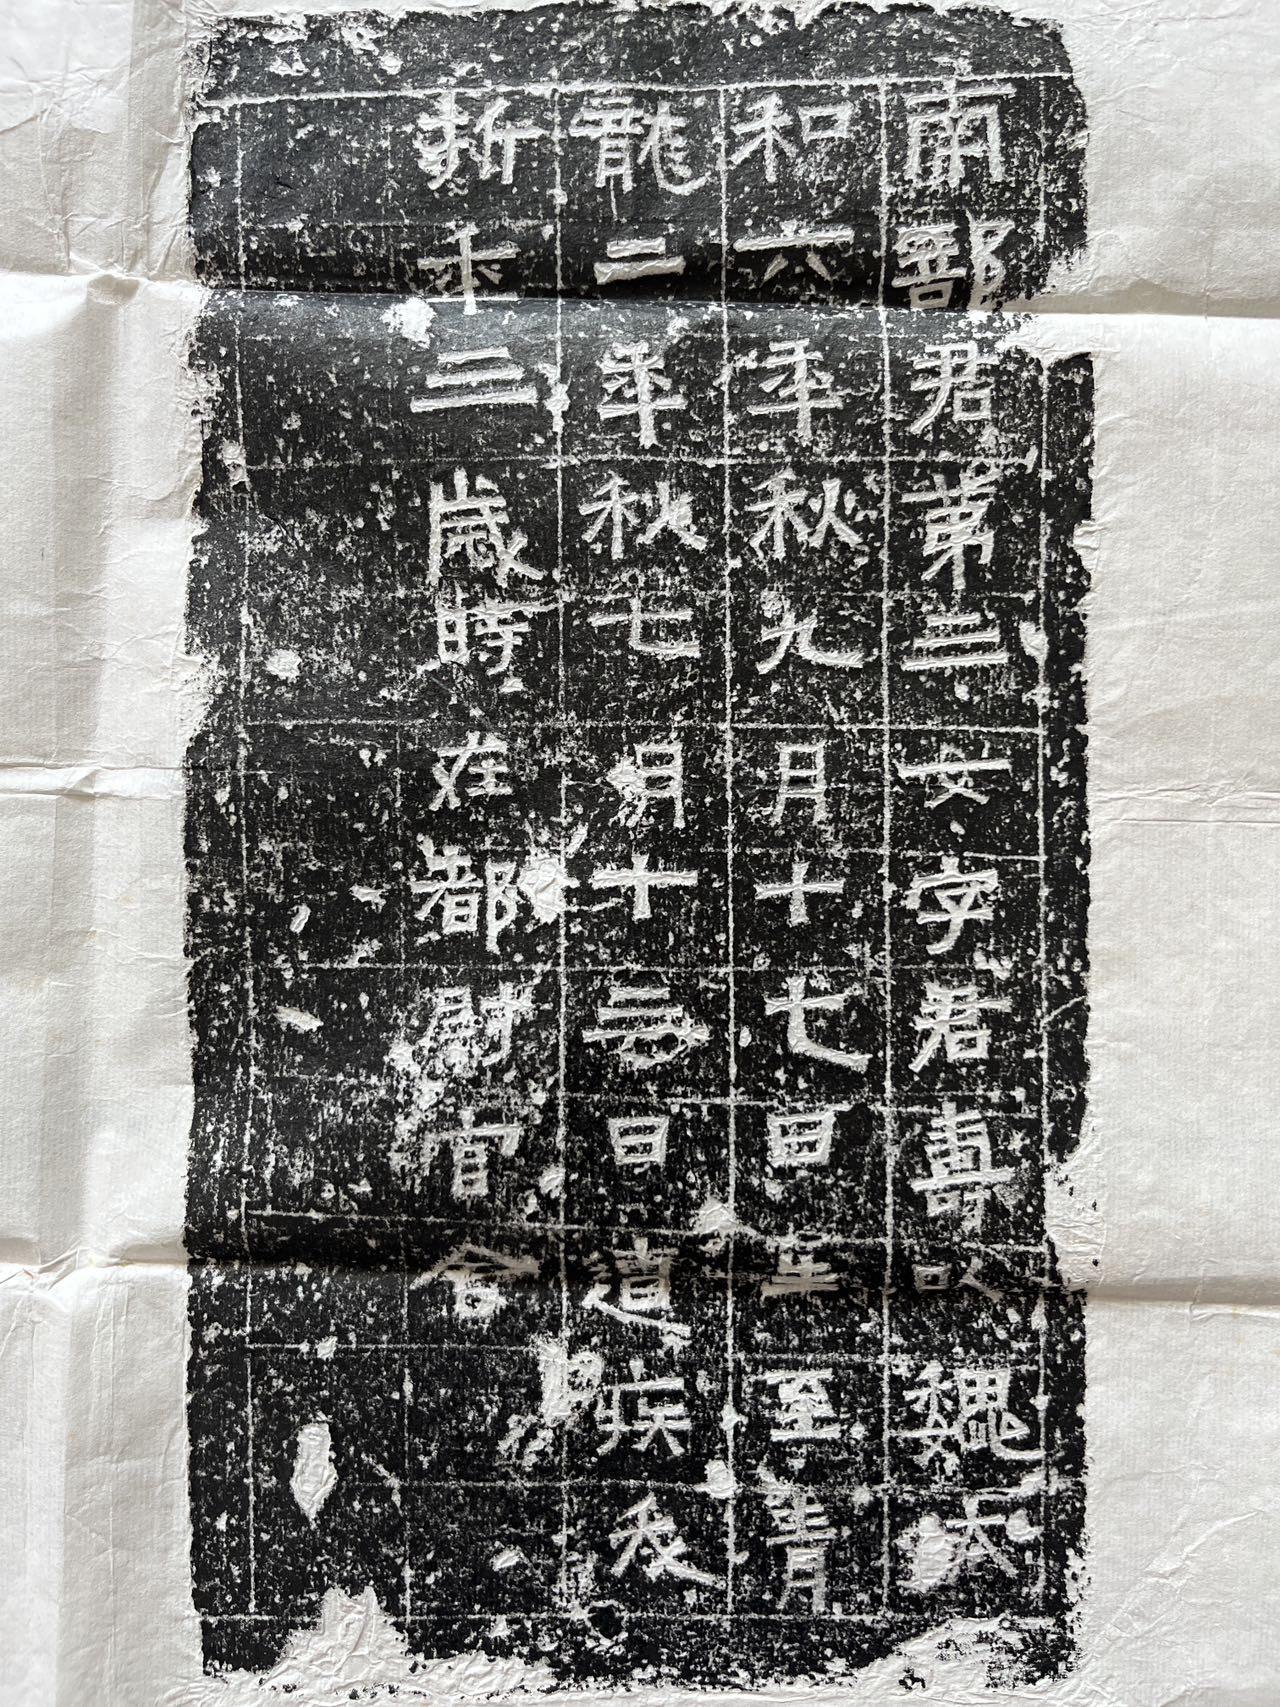 南部君第三女字君壽以魏太
和六年秋九月十七日生至青
龍二年秋七月十三日遭疾夭
折年三歲時在都尉官舍